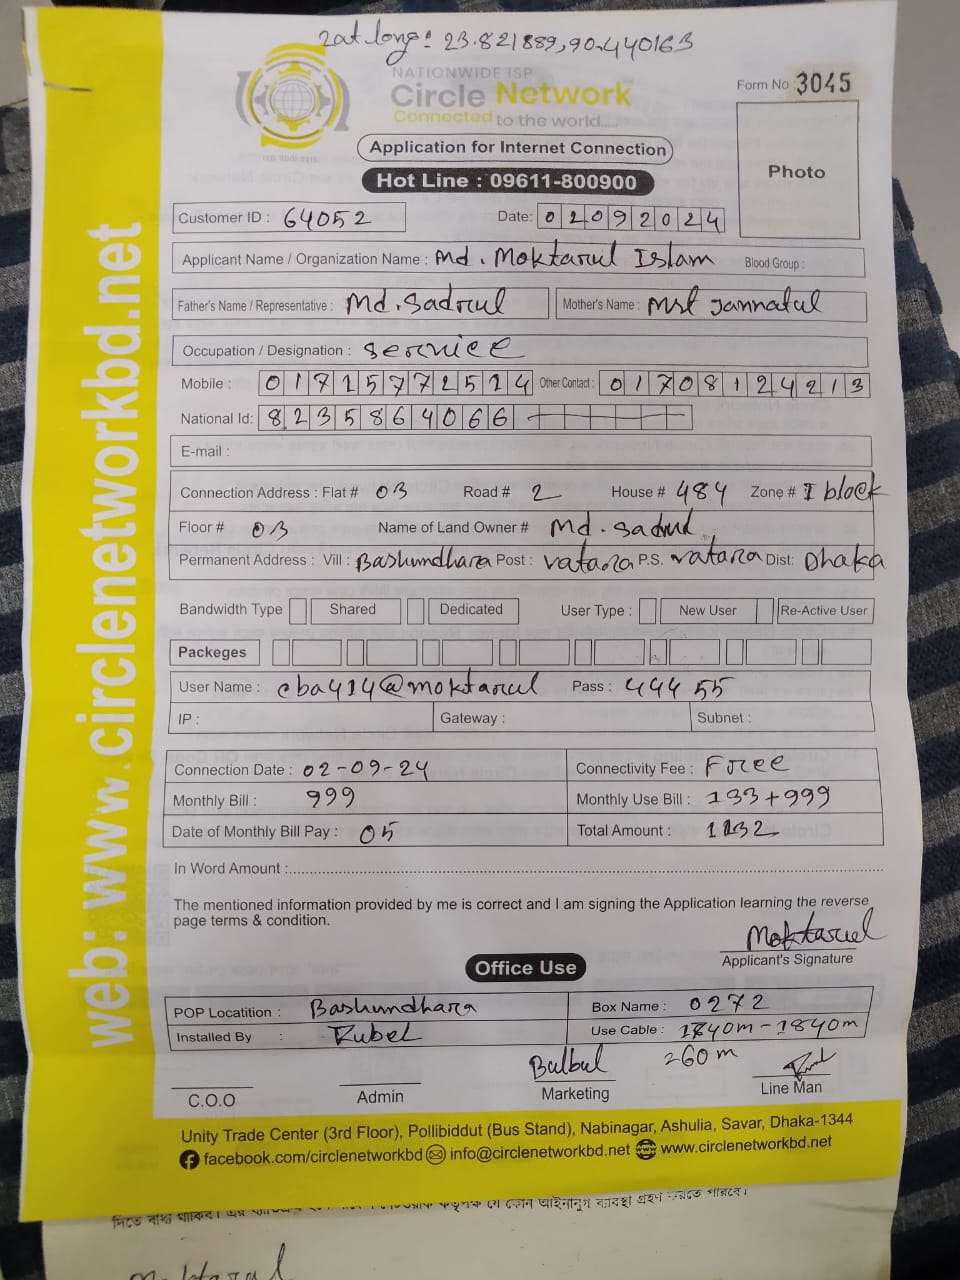 Lat long: 23.821889, 90.440163
NATIONWIDE ISP
Circle Network
Connected to the world....
Form No : 3045
Application for Internet Connection
Photo
Hot Line : 09611-800900
Customer ID : 64052 Date: 02092024
Applicant Name / Organization Name : Md. Moktarul Islam Blood Group :
Father's Name / Representative : Md. Sadrul Mother's Name : Mst Jannatul
Occupation / Designation : Service
Mobile : 01715772514 Other Contact : 01708124213
National Id: 8235864066
E-mail :
Connection Address : Flat # 03 Road # 2 House # 484 Zone # I block
Floor # 03 Name of Land Owner # Md. Sadrul
Permanent Address : Vill : Bashundhara Post : vatara P.S. vatara Dist: Dhaka
Bandwidth Type Shared Dedicated User Type : New User Re-Active User
Packeges
User Name : cba414@moktarul Pass : 44455
IP : Gateway : Subnet :
Connection Date : 02-09-24 Connectivity Fee : Free
Monthly Bill : 999 Monthly Use Bill : 133+999
Date of Monthly Bill Pay : 05 Total Amount : 1132
In Word Amount :
The mentioned information provided by me is correct and I am signing the Application learning the reverse
page terms & condition.
Moktarul
Applicant's Signature
Office Use
POP Locatition : Bashundhara Box Name : 0272
Installed By : Rubel Use Cable : 1840m-1840m
Bulbul 260m
C.O.O Admin Marketing Line Man
Unity Trade Center (3rd Floor), Pollibiddut (Bus Stand), Nabinagar, Ashulia, Savar, Dhaka-1344
facebook.com/circlenetworkbd info@circlenetworkbd.net www.circlenetworkbd.net
web: www.circlenetworkbd.net
Moktarul